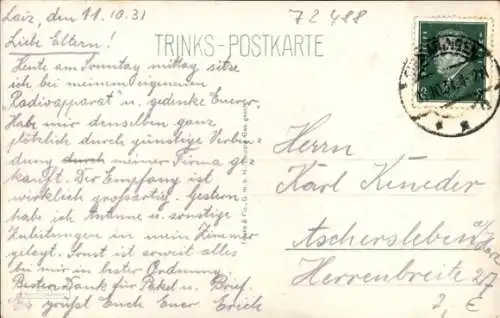 Laiz, den 11.10.31
72488
Liebe Eltern!
TRINKS-POSTKARTE
Heute am Sonntag mittag sitze
ich bei meinem eigenen
„Radioapparat" u. gedenke Euerer.
Habe mir denselben ganz
plötzlich durch günstige Verbin-
dung durch meiner Firma ge-
kauft. Der Empfang ist
wirklich großartig. Gestern
habe ich Antenne u. sonstige
Zuleitungen in mein Zimmer
gelegt. Sonst ist soweit alles
bei mir in bester Ordnung
Besten Dank für Paket u. Brief.
Es grüßt Euch Euer Erich
Herrn
Karl
Aschersleben a/Harz
Herrenbreite 27
7,- €